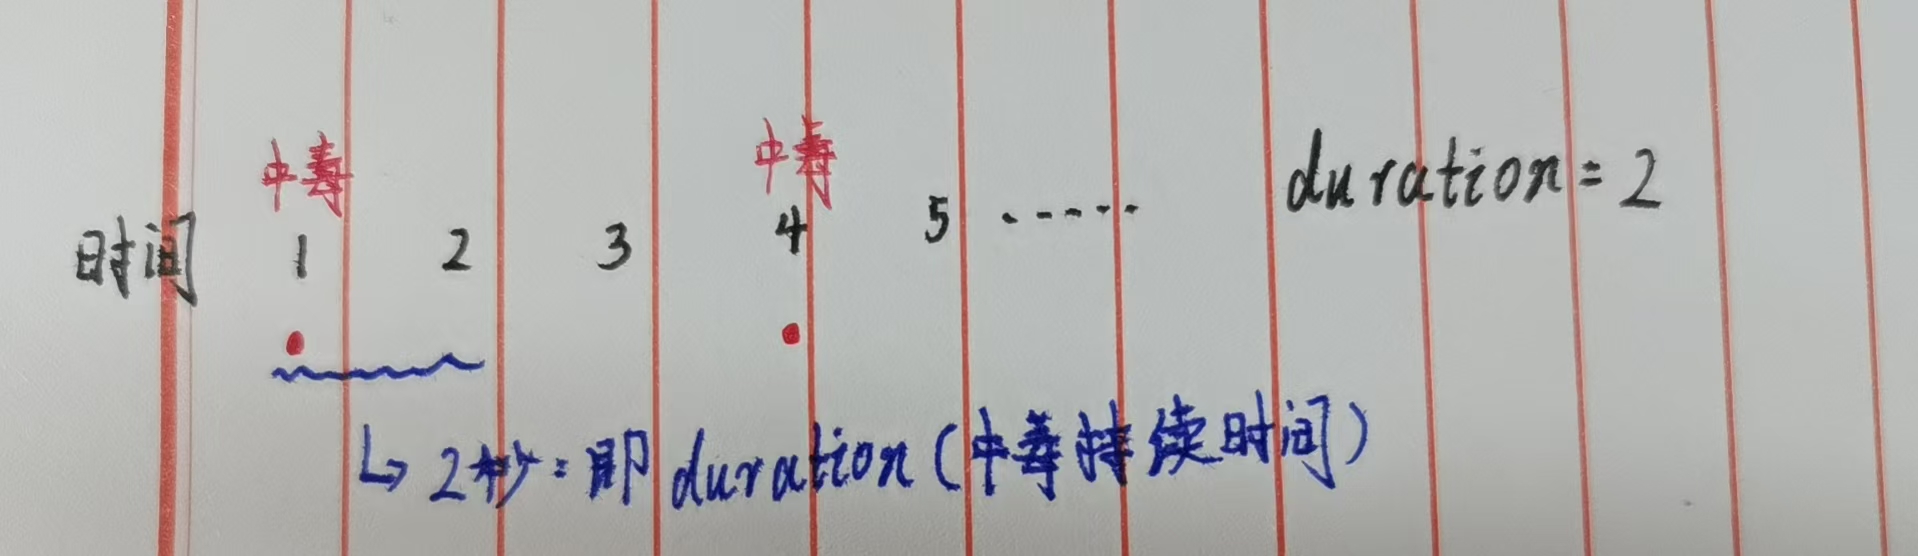 中毒 中毒
时间 1 2 3 4 5 ...... duration = 2
↳ 2秒：即 duration（中毒持续时间）